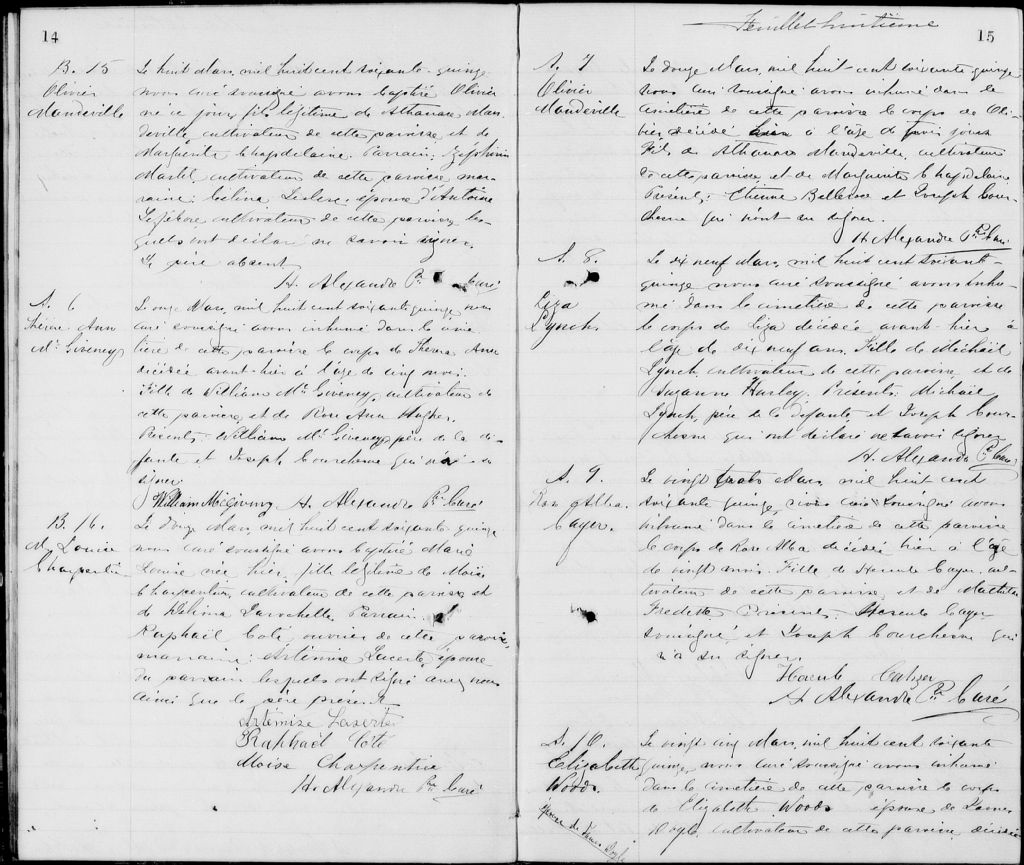 14
B. 15
Olivier
Mandeville
Le huit Mars, mil huit cent soixante-quinze
nous curé soussigné avons baptisé Olivier
né ce jour, fils légitime de Athanase Man-
deville, cultivateur de cette paroisse et de
Marguerite Chapdelaine. Parrain: Zéphirin
Martel, cultivateur de cette paroisse, mar-
raine: Célina Leclerc, épouse d'Antoine
Lefebvre cultivateur de cette paroisse, les-
quels ont déclaré ne savoir signer.
Le père absent
H. Alexandre Ptre Curé
S. 6
Thérèse Ann
Mc Giveney
Le onze Mars, mil huit cent soixante quinze nous
curé soussigné avons inhumé dans le cime-
tière de cette paroisse le corps de Theresa Ann
décédée avant-hier à l'âge de cinq mois.
Fille de William Mc Giveney, cultivateur de
cette paroisse et de Rose Ann Hughes.
Présents: William Mc Giveney, père de la dé-
funte et Joseph Courchesne qui n'a su
signer.
William McGivney H. Alexandre Ptre Curé
B. 16.
M. Louise
Charpentier
Le douze Mars, mil huit cent soixante-quinze
nous curé soussigné avons baptisé Marie
Louise née hier, fille légitime de Moïse
Charpentier, cultivateur de cette paroisse et
de Delvina Larochelle. Parrain:
Raphaël Coté, ouvrier de cette paroisse,
marraine: Artémise Lacerte, épouse
du parrain lesquels ont signé avec nous
ainsi que le père présent.
Artémise Laserte
Raphaël Côté
Moïse Charpentier
H. Alexandre Ptre Curé
Feuillet huitième
15
S. 7
Olivier
Mandeville
Le douze Mars, mil huit-cent soixante quinze
nous curé soussigné avons inhumé dans le
cimetière de cette paroisse le corps de Oli-
vier, décédé hier à l'âge de trois jours
Fils de Athanase Mandeville, cultivateur
de cette paroisse et de Marguerite Chapdelaine
Présents: Etienne Bellerose et Joseph Cour-
chesne qui n'ont su signer.
H. Alexandre Ptre Curé
S. 8.
Liza
Lynch
Le dix neuf Mars, mil huit cent soixante-
quinze nous curé soussigné avons inhu-
mé dans le cimetière de cette paroisse
le corps de Liza décédée avant-hier à
l'âge de dix neuf ans. Fille de Michaël
Lynch, cultivateur de cette paroisse et de
Suzanne Hurley. Présents: Michaël
Lynch, père de la défunte et Joseph Cour-
chesne qui ont déclaré ne savoir signer
H. Alexandre Ptre Curé
S. 9
Rose Alba
Cayer.
Le vingt trois Mars, mil huit cent
soixante quinze, nous curé soussigné avons
inhumé dans le cimetière de cette paroisse
le corps de Rose Alba décédée hier à l'âge
de vingt mois. Fille de Hercule Cayer, cul-
tivateur de cette paroisse, et de Mathilde
Fredette. Présents: Hercule Cayer
soussigné et Joseph Courchesne qui
n'a su signer.
Hercule Cahyer
H. Alexandre Ptre Curé
S. 10.
Elizabeth
Woods
épouse de James Doyle
Le vingt cinq Mars, mil huit cent soixante
quinze, nous curé soussigné avons inhumé
dans le cimetière de cette paroisse le corps
de Elizabeth Woods épouse de James
Doyle, cultivateur de cette paroisse, décédée